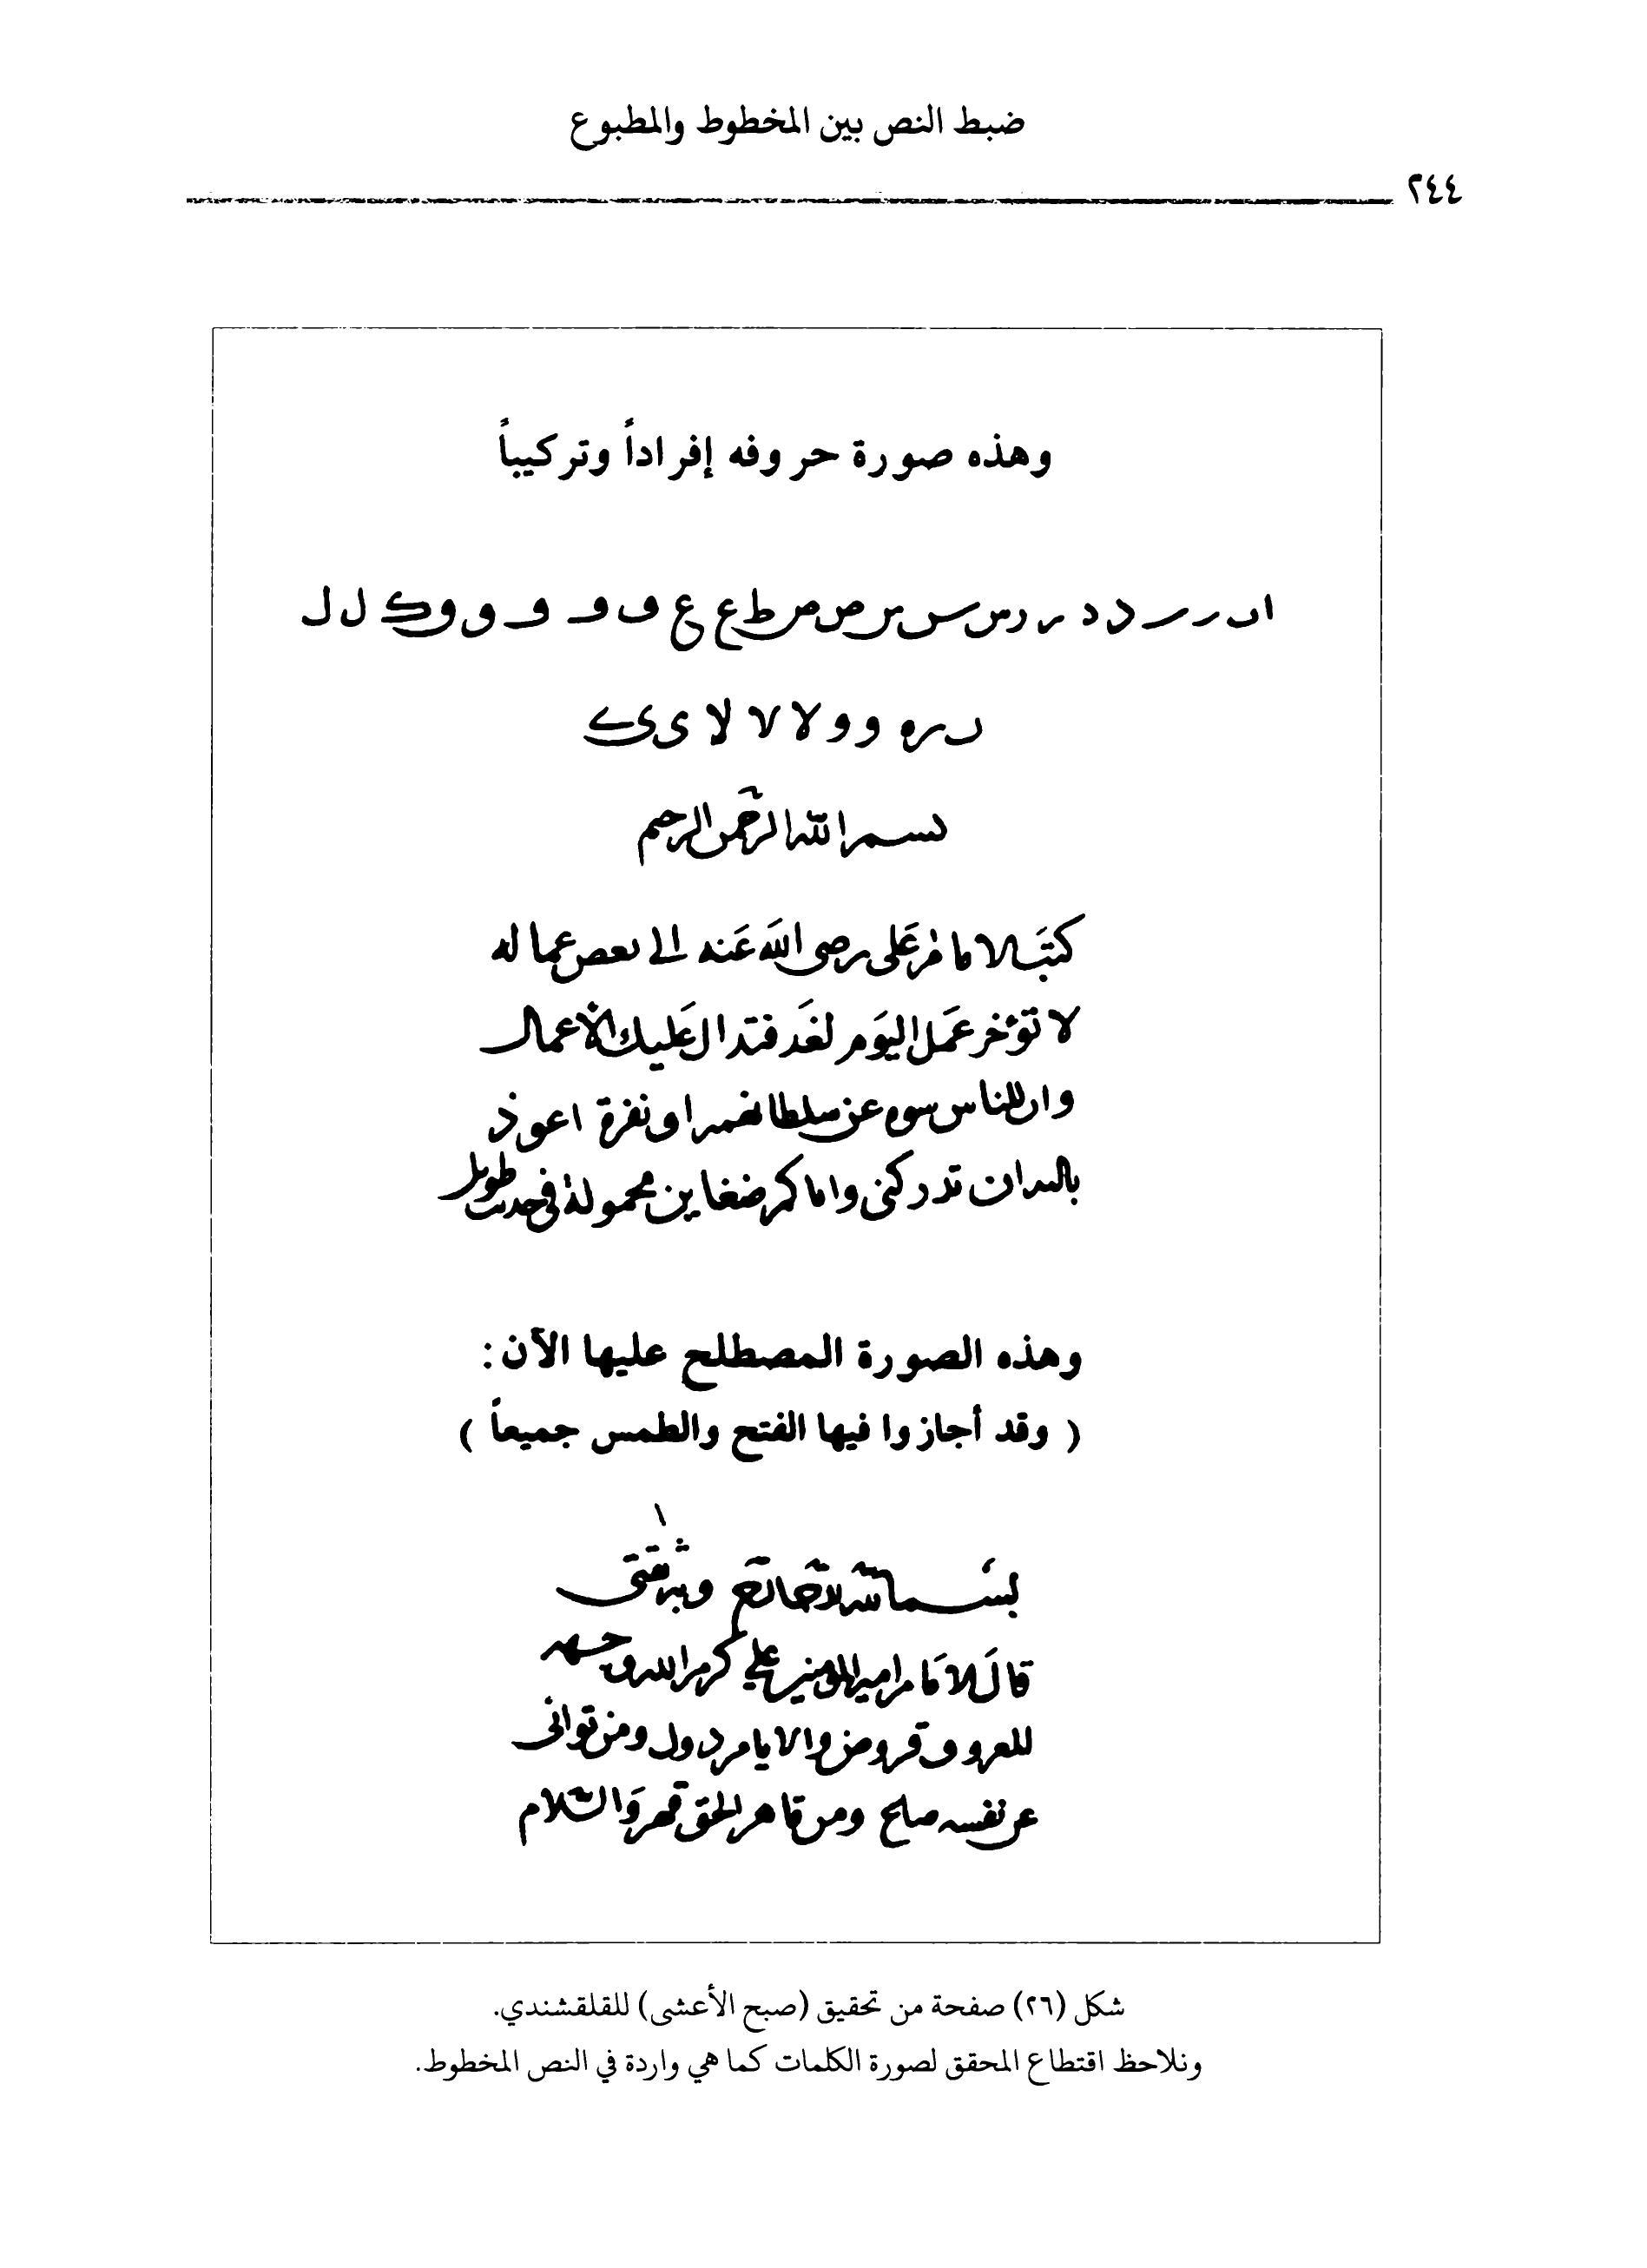 ضبط النص بين المخطوط والمطبوع
٢٤٤
وهذه صورة حروفه إفراداً وتركيباً
لا لا لا
بسم الله الرحمن الرحيم
كتب الامام على رضى الله عنه الى بعض عماله
لا تؤخر عمل اليوم لغد فتدال عليك الأعمال
وان للناس عن سلطانهم او نفرة اعوذ
بالله ان تدركنى واياكم ضغاين محمولة فى حديث طويل
وهذه الصورة المصطلح عليها الآن :
( وقد أجازوا فيها الفتح والطمس جميعاً )
بسم الله وبه ثقتى
قال الامام امير المومنين على كرم الله وجهه
المعروف قروض والايام دول ومن توانى
عن نفسه ضاع ومن قاهر الحق قهر والسلام
شكل (٢٦) صفحة من تحقيق (صبح الأعشى) للقلقشندي.
ونلاحظ اقتطاع المحقق لصورة الكلمات كما هي واردة في النص المخطوط.